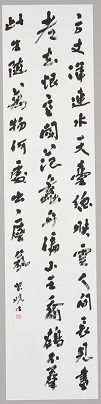 方丈渾連水天臺總映雲人間長見畫
老去恨空聞范蠡舟偏小王喬鶴不羣
此生隨萬物何處出塵氛